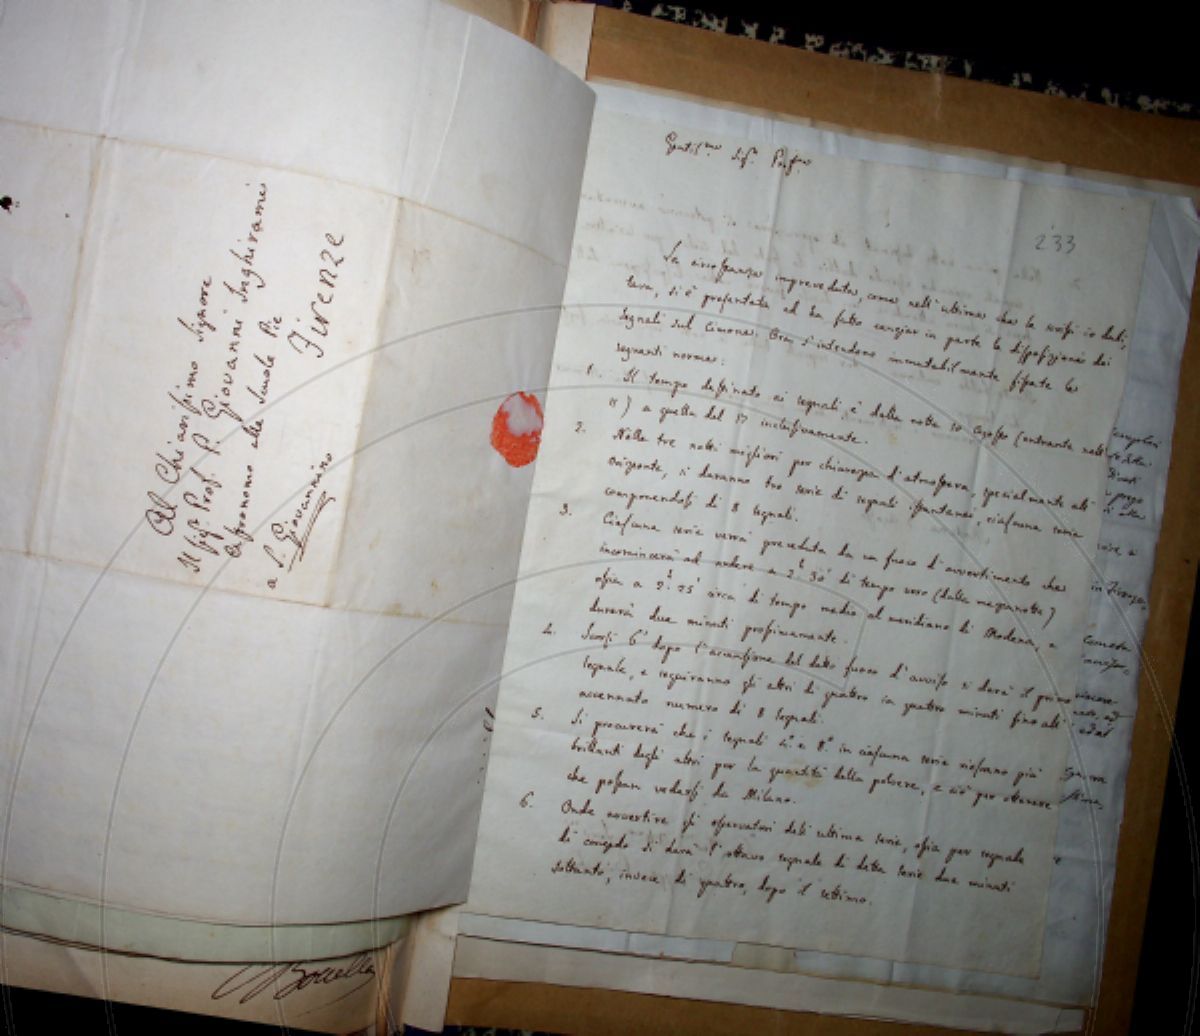 Al Chiarissimo Signore
Il Sigr. Prof. P. Giovanni Inghirami
Astronomo alle Scuole Pie
Firenze
a S. Giovannino
Gentilmo. Sigr. Profre.
233
La circostanza impreveduta, come nell'ultima che le scrissi io dubi-
tava, si è presentata ed ha fatto cangiar in parte la disposizione dei
segnali sul Cimone. Ora s'intendono immutabilmente fissate le
seguenti norme:
1. Il tempo destinato ai segnali è dalla notte 10 Agosto (entrante nell'
11) a quella del 17 inclusivamente.
2. Nelle tre notti migliori per chiarezza d'atmosfera, specialmente all'
orizonte, si daranno tre serie di segnali istantanei, ciascuna serie
componendosi di 8 segnali.
3. Ciascuna serie verrà preceduta da un fuoco d'avvertimento che
incomincerà ad ardere a 2h. 30' di tempo vero (dalla mezzanotte)
ossia a 2h. 25' circa di tempo medio al meridiano di Modena, e
durerà due minuti prossimamente.
4. Scorsi 6' dopo l'accensione del detto fuoco d'avviso si darà il primo
segnale, e seguiranno gli altri di quattro in quattro minuti fino all'
accennato numero di 8 segnali.
5. Si procurerà che i segnali 4.° e 8.° in ciascuna serie riescano più
brillanti degli altri per la quantità della polvere, e ciò per ottenere
che possan vedersi da Milano.
6. Onde avvertire gli osservatori dell'ultima serie, ossia per segnale
di congedo si darà l'ottavo segnale di detta serie due minuti
soltanto, invece di quattro, dopo il settimo.
in Firenze,